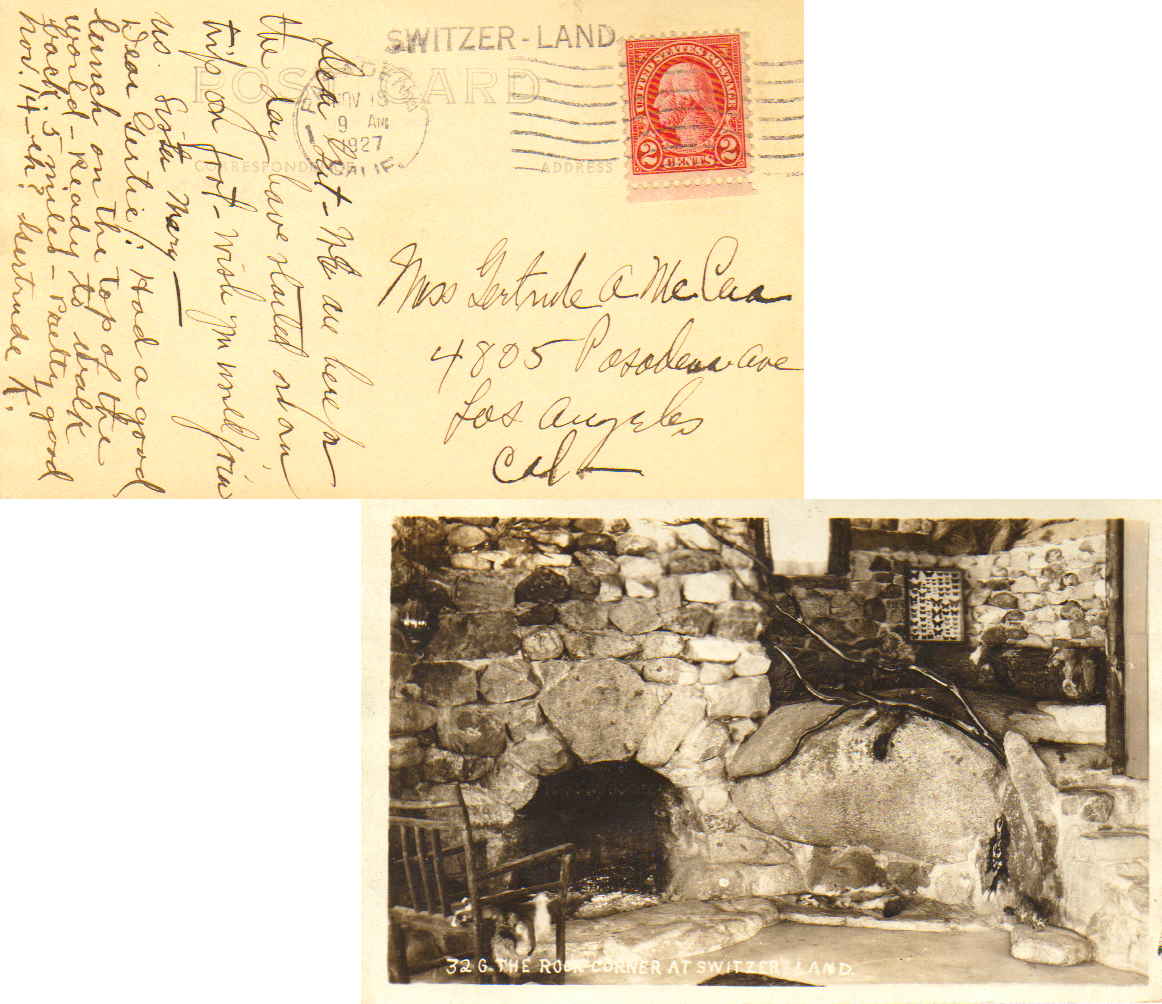 SWITZER-LAND
POST CARD
PASADENA
NOV 15
9 AM
1927
CALIF.
CORRESPONDENCE
ADDRESS
UNITED STATES POSTAGE
2 CENTS 2
Miss Gertrude A McCrea
4805 Pasadena ave
Los Angeles
Cal
Dear Gert - We are here for
the day have started on our
trip on foot - wish you would join
us. Sister Mary
Dear Gertie: Had a good
lunch on the top of the
world - ready to walk
back 5 miles - pretty good
Nov. 14 - eh? Gertrude K.
32 G. THE ROCK CORNER AT SWITZER-LAND.